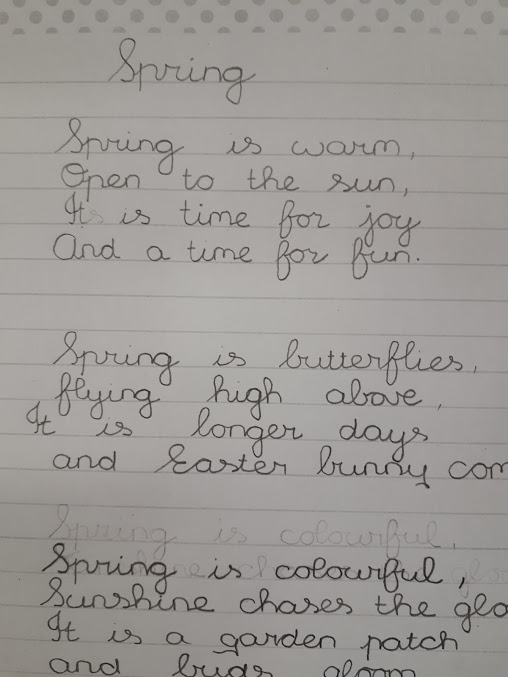 Spring
Spring is warm,
Open to the sun,
It is time for joy
And a time for fun.
Spring is butterflies,
flying high above,
It is longer days
and Easter bunny com
Spring is colourful,
Spring is colourful,
Sunshine chases the glo
It is a garden patch
and